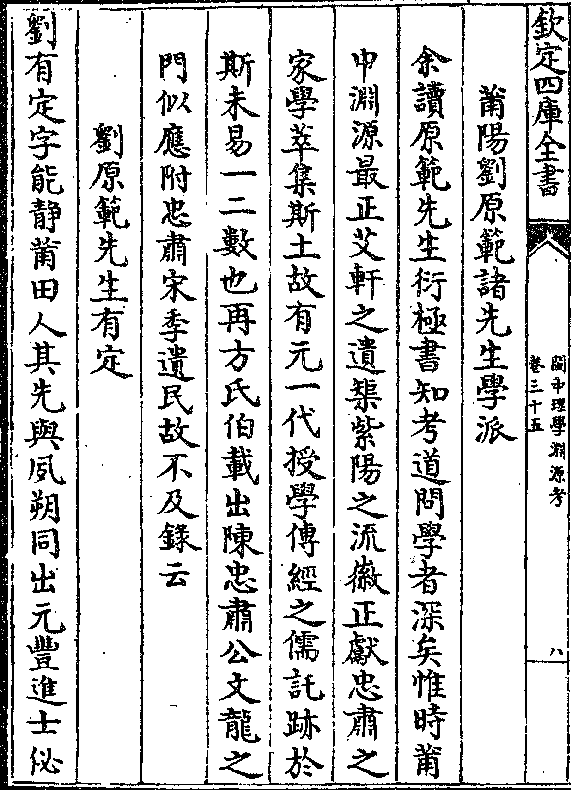 欽定四庫全書
閩中理學淵源考
卷三十五
八
莆陽劉原範諸先生學派
余讀原範先生衍極書知考道問學者深矣惟時莆
中淵源最正艾軒之遺榘紫陽之流徽正獻忠肅之
家學萃集斯土故有元一代授學傳經之儒託跡於
斯未易一二數也再方氏伯載出陳忠肅公文龍之
門似應附忠肅宋季遺民故不及錄云
劉原範先生有定
劉有定字能静莆田人其先與夙朔同出元豐進士佖